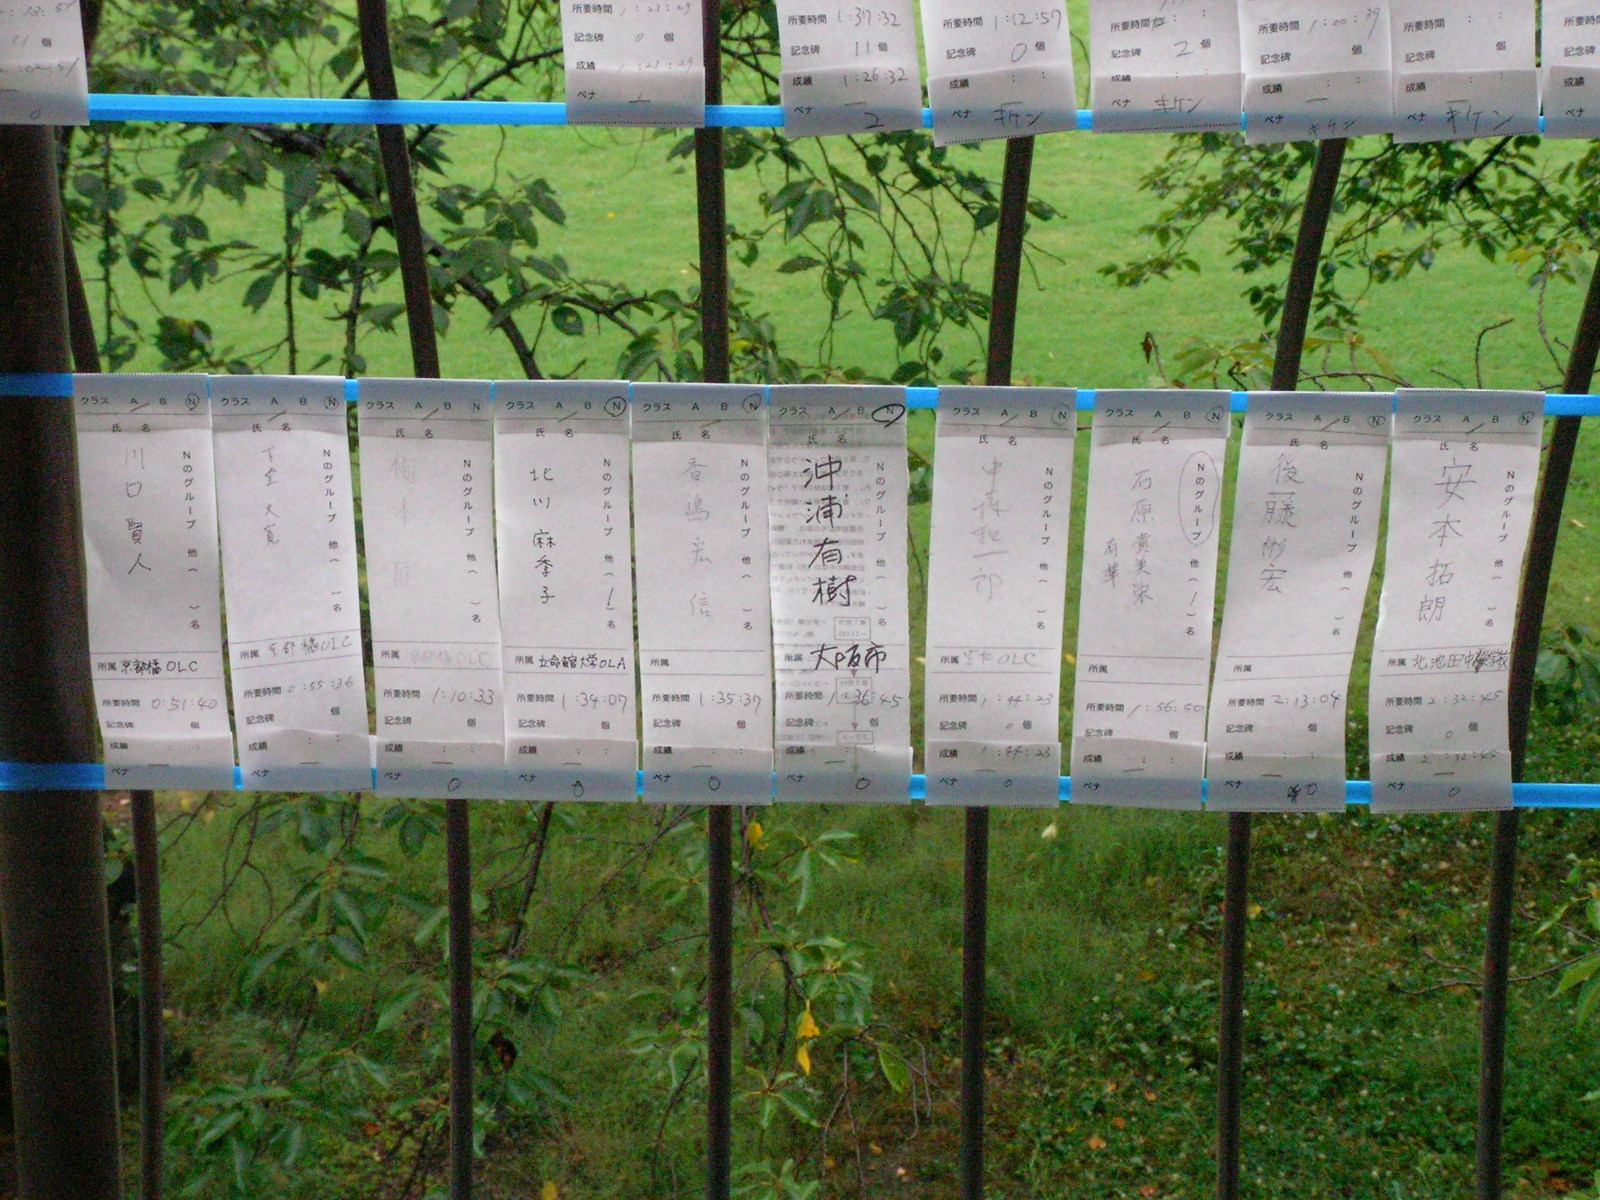 11 個
所要時間 1:23:29
記念碑 0 個
成績 1:23:29
ペナ
所要時間 1:37:32
記念碑 11 個
成績 1:26:32
ペナ 2
所要時間 1:12:57
記念碑 0 個
成績 : :
ペナ キケン
所要時間 : :
記念碑 2 個
成績 : :
ペナ キケン
所要時間 1:00:39
記念碑 個
成績 : :
ペナ キケン
所要時間 : :
記念碑 個
成績 : :
ペナ キケン
所要時間
記念碑
成績
クラス A B N
氏 名
川口 賢人
Nのグループ 他( )名
所属 京都橘OLC
所要時間 0:51:40
記念碑 個
成績 : :
ペナ
クラス A B N
氏 名
Nのグループ 他( )名
所属 京都橘OLC
所要時間 0:55:36
記念碑 個
成績 : :
ペナ
クラス A B N
氏 名
Nのグループ 他( )名
所属 京都橘OLC
所要時間 1:10:33
記念碑 個
成績 : :
ペナ 0
クラス A B N
氏 名
北川 麻季子
Nのグループ 他(1)名
所属 立命館大学OLA
所要時間 1:34:07
記念碑 個
成績 : :
ペナ 0
クラス A B N
氏 名
香嶋 宏信
Nのグループ 他( )名
所属
所要時間 1:35:37
記念碑 個
成績 : :
ペナ 0
クラス A B N
氏 名
沖浦有樹
Nのグループ 他( )名
所属 大阪市
所要時間 1:36:45
記念碑 個
成績 : :
ペナ 0
クラス A B N
氏 名
Nのグループ 他( )名
所属 OLC
所要時間 1:44:23
記念碑 0 個
成績 1:44:23
ペナ 0
クラス A B N
氏 名
石原 貴美栄
有華
Nのグループ 他(1)名
所属
所要時間 1:56:50
記念碑 個
成績 : :
ペナ
クラス A B N
氏 名
後藤 彬宏
Nのグループ 他( )名
所属
所要時間 2:13:04
記念碑 個
成績 : :
ペナ 0
クラス A B N
氏 名
安本拓朗
Nのグループ 他( )名
所属 北池田中学校
所要時間 2:32:45
記念碑 0 個
成績 2:32:45
ペナ 0